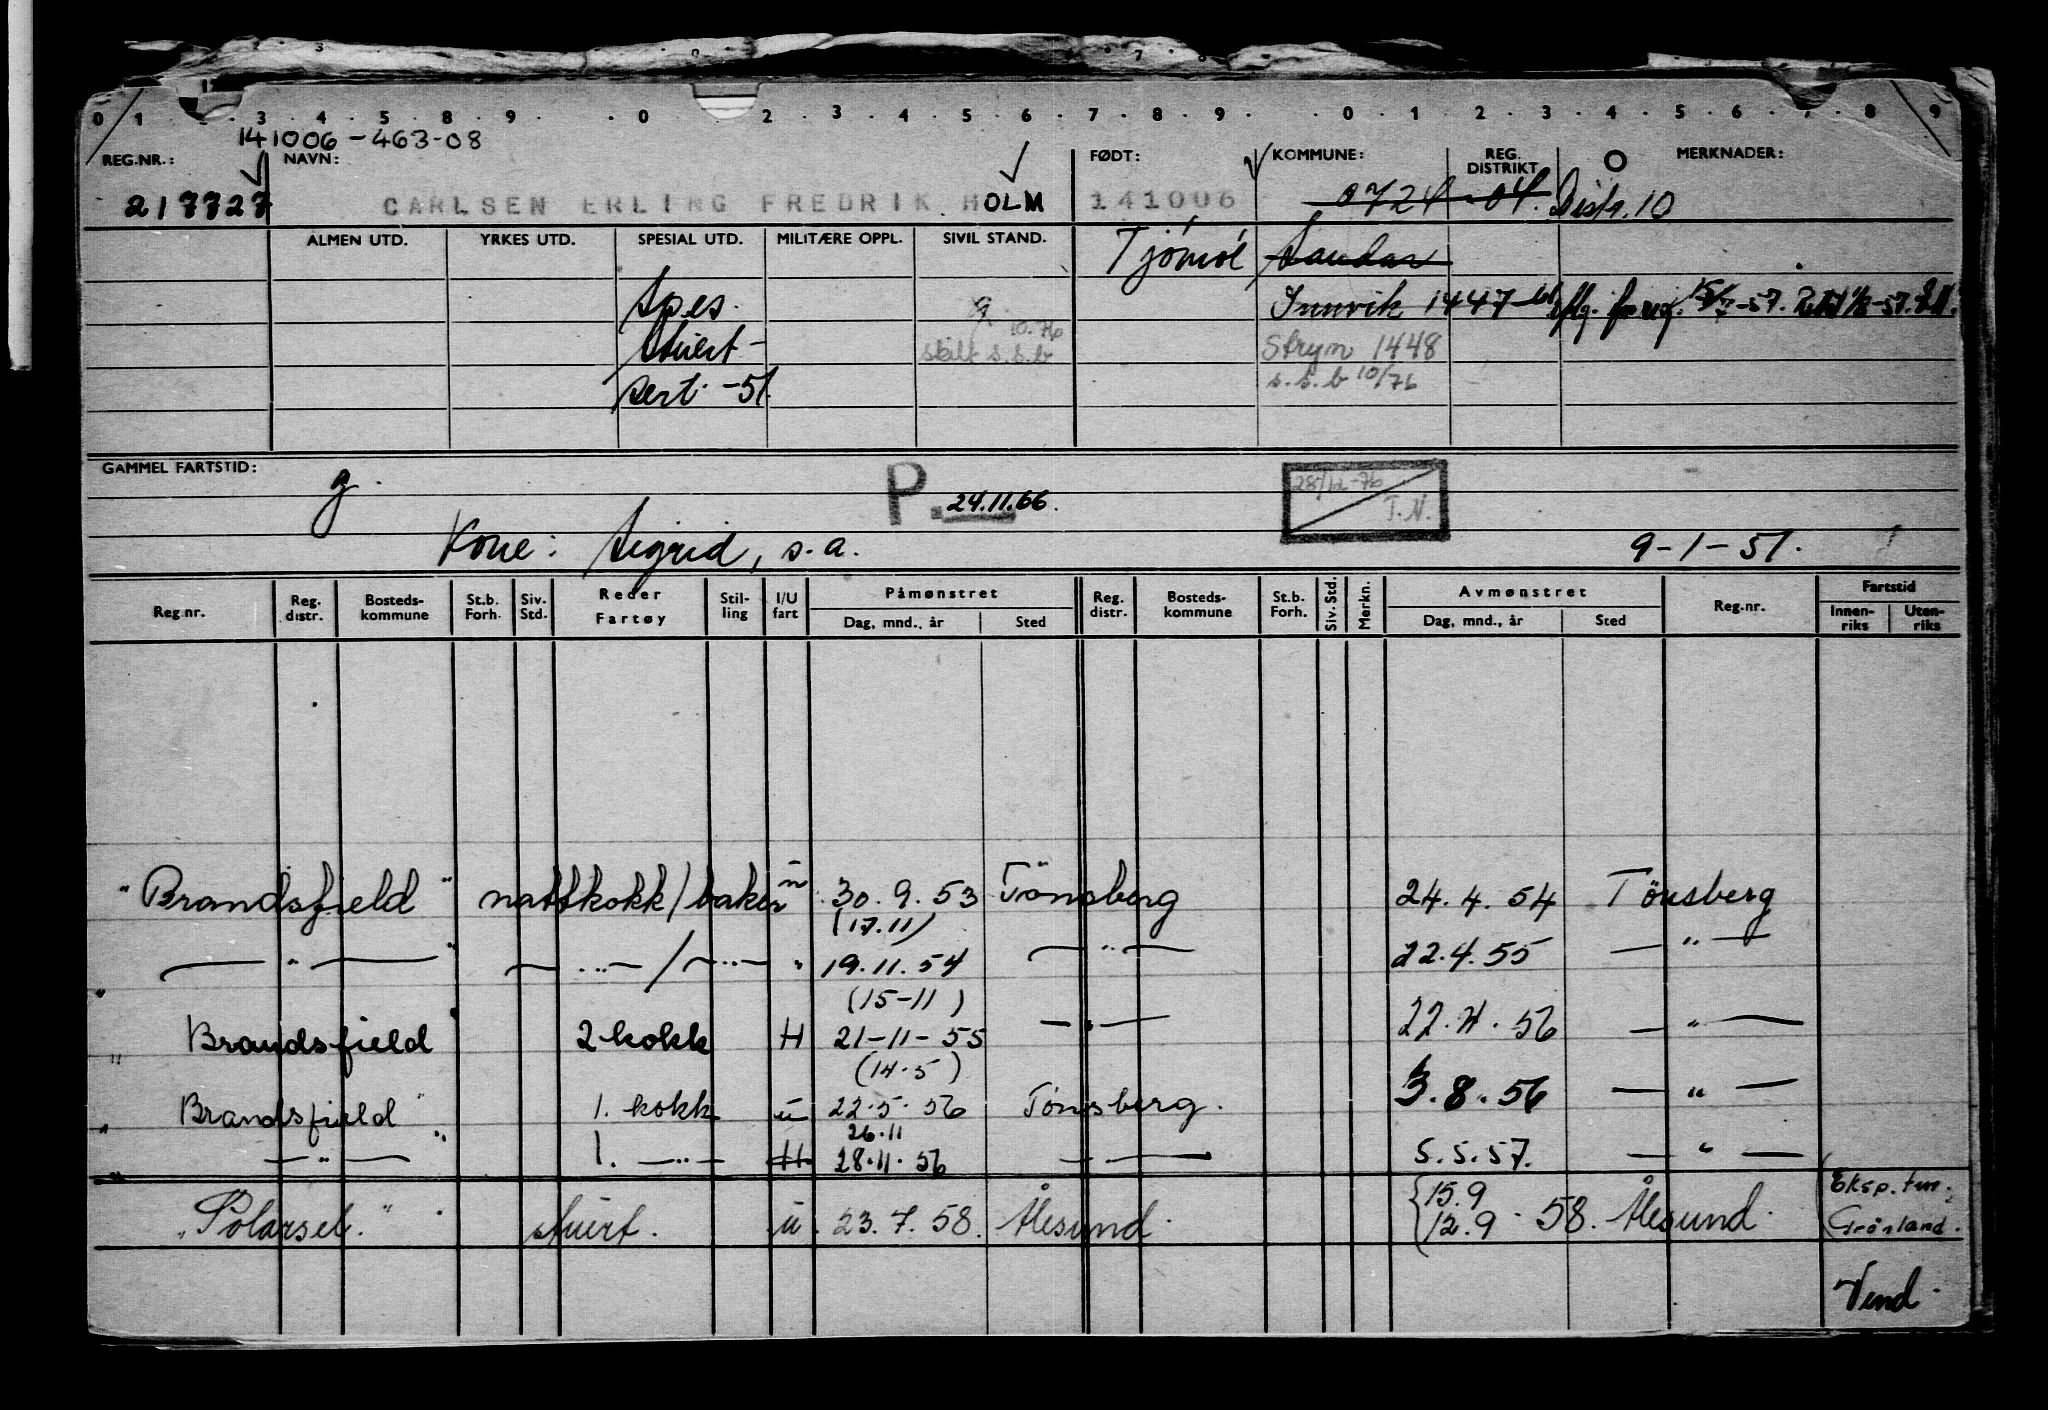 0 1 2 3 4 5 8 9 0 2 3 4 5 6 7 8 9 0 1 2 3 4 5 6 7 8 9
141006-463-08
REG.NR.: NAVN: FØDT: KOMMUNE: REG. DISTRIKT MERKNADER:
217727 CARLSEN ERLING FREDRIK HOLM 141006 0724-04. Distr. 10
ALMEN UTD. YRKES UTD. SPESIAL UTD. MILITÆRE OPPL. SIVIL STAND. Tjöme Sandar
Spes. g Innvik 1447
Stuert- 10.76 skilt s.s.b Stryn 1448
sert. -51. s.s.b 10/76
GAMMEL FARTSTID: g. P. 24.11.66. 28/12-76 T.N.
Kone: Sigrid, s.a. 9-1-51.
Reg.nr. Reg. distr. Bosteds-kommune St.b. Forh. Siv. Std. Reder Fartøy Stil-ling I/U fart Påmønstret Dag, mnd., år Sted Reg. distr. Bosteds-kommune St.b. Forh. Siv. Std. Merkn. Avmønstret Dag, mnd., år Sted Reg.nr. Fartstid Innen-riks Uten-riks
"Brandsfield" nattkokk/baker 30.9.53 Tönsberg 24.4.54 Tönsberg
(17.11)
— " — " — " — / — " — " 19.11.54 — " — 22.4.55 — " —
(15-11)
"Brandsfield" 2 kokk H 21-11-55 — " — 22.4.56 — " —
(14.5)
"Brandsfield" 1. kokk u 22.5.56 Tönsberg. 3.8.56 — " —
26.11
" — " — " 1. — " — H 28.11.56 — " — 5.5.57. — " —
"Polarsel." stuert. u. 23.7.58. Ålesund {15.9 12.9 . 58. Ålesund. (Eksp. tur. Grönland.
Vend.